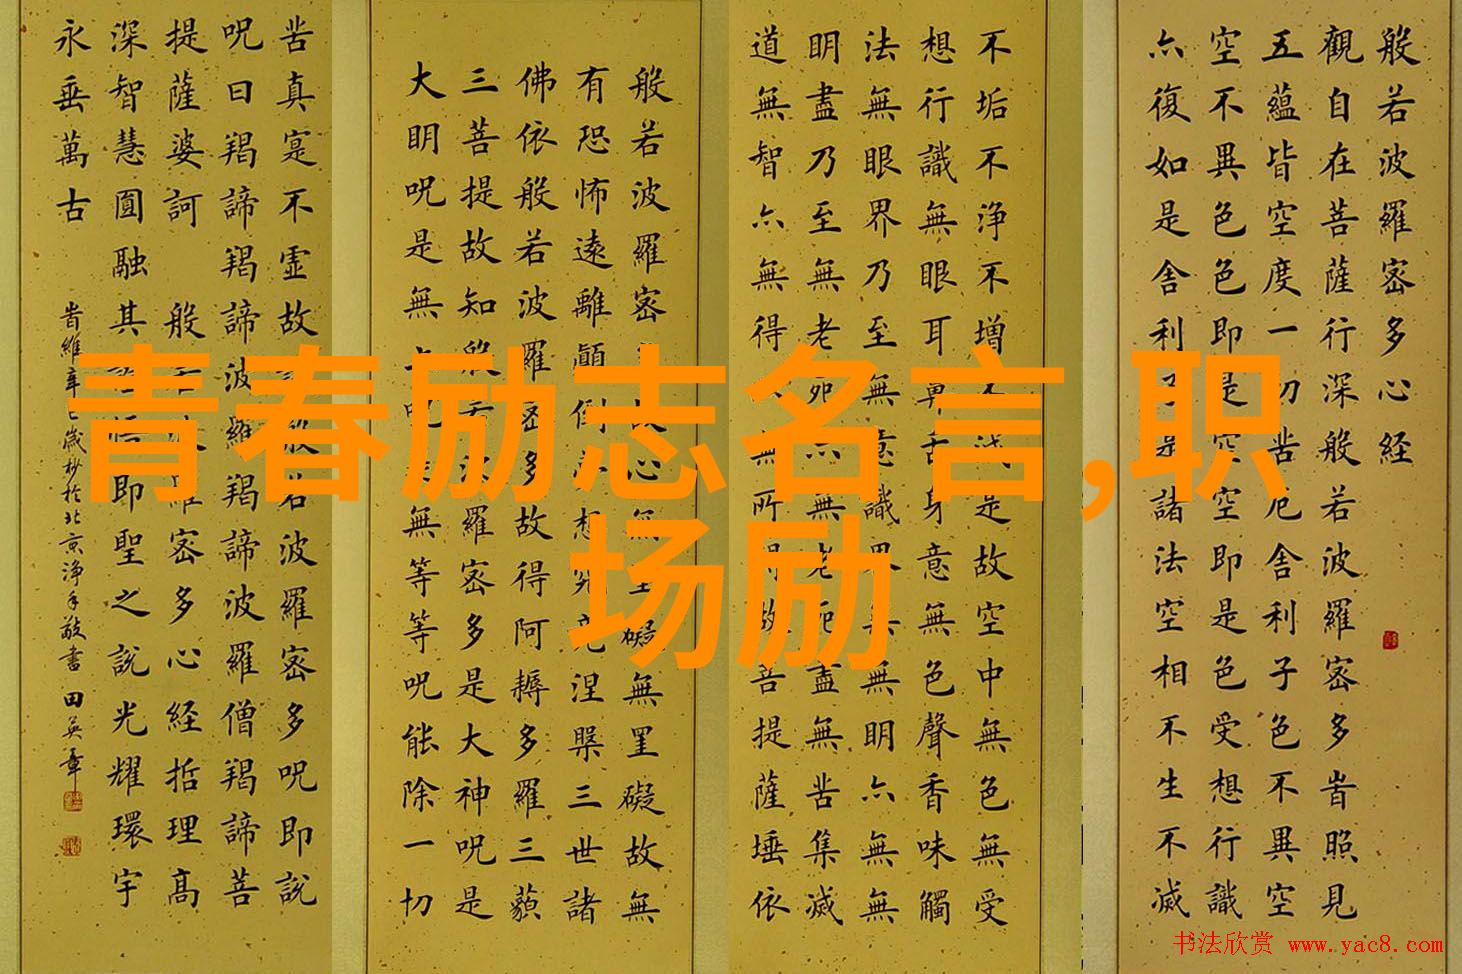 般若波羅密多心経
觀自在菩薩行深般若波羅密多旹照見
五蘊皆空度一切苦厄舍利子色不異空
空不異色色即是空空即是色受想行識
亦復如是舍利子是諸法空相不生不滅
不垢不浄不增不減是故空中無色無受
想行識無眼耳鼻舌身意無色聲香味觸
法無眼界乃至無意識界無無明亦無無
明盡乃至無老死亦無老死盡無苦集滅
道無智亦無得以無所得故菩提薩埵依
般若波羅密多故心無罣礙無罣礙故無
有恐怖遠離顛倒夢想究竟涅槃三世諸
佛依般若波羅密多故得阿耨多羅三藐
三菩提故知般若波羅密多是大神呪是
大明呪是無上呪是無等等呪能除一切
苦真寔不虛故說般若波羅密多呪即說
呪曰羯諦羯諦波羅羯諦波羅僧羯諦菩
提薩婆訶 般若波羅密多心経括理高
深智慧圓融其即聖之說光耀環宇
永垂萬古
旹維辛巳歲杪於北京浄手敬書 田英章
青春励志名言,职
场励
书法欣赏 www.yac8.com